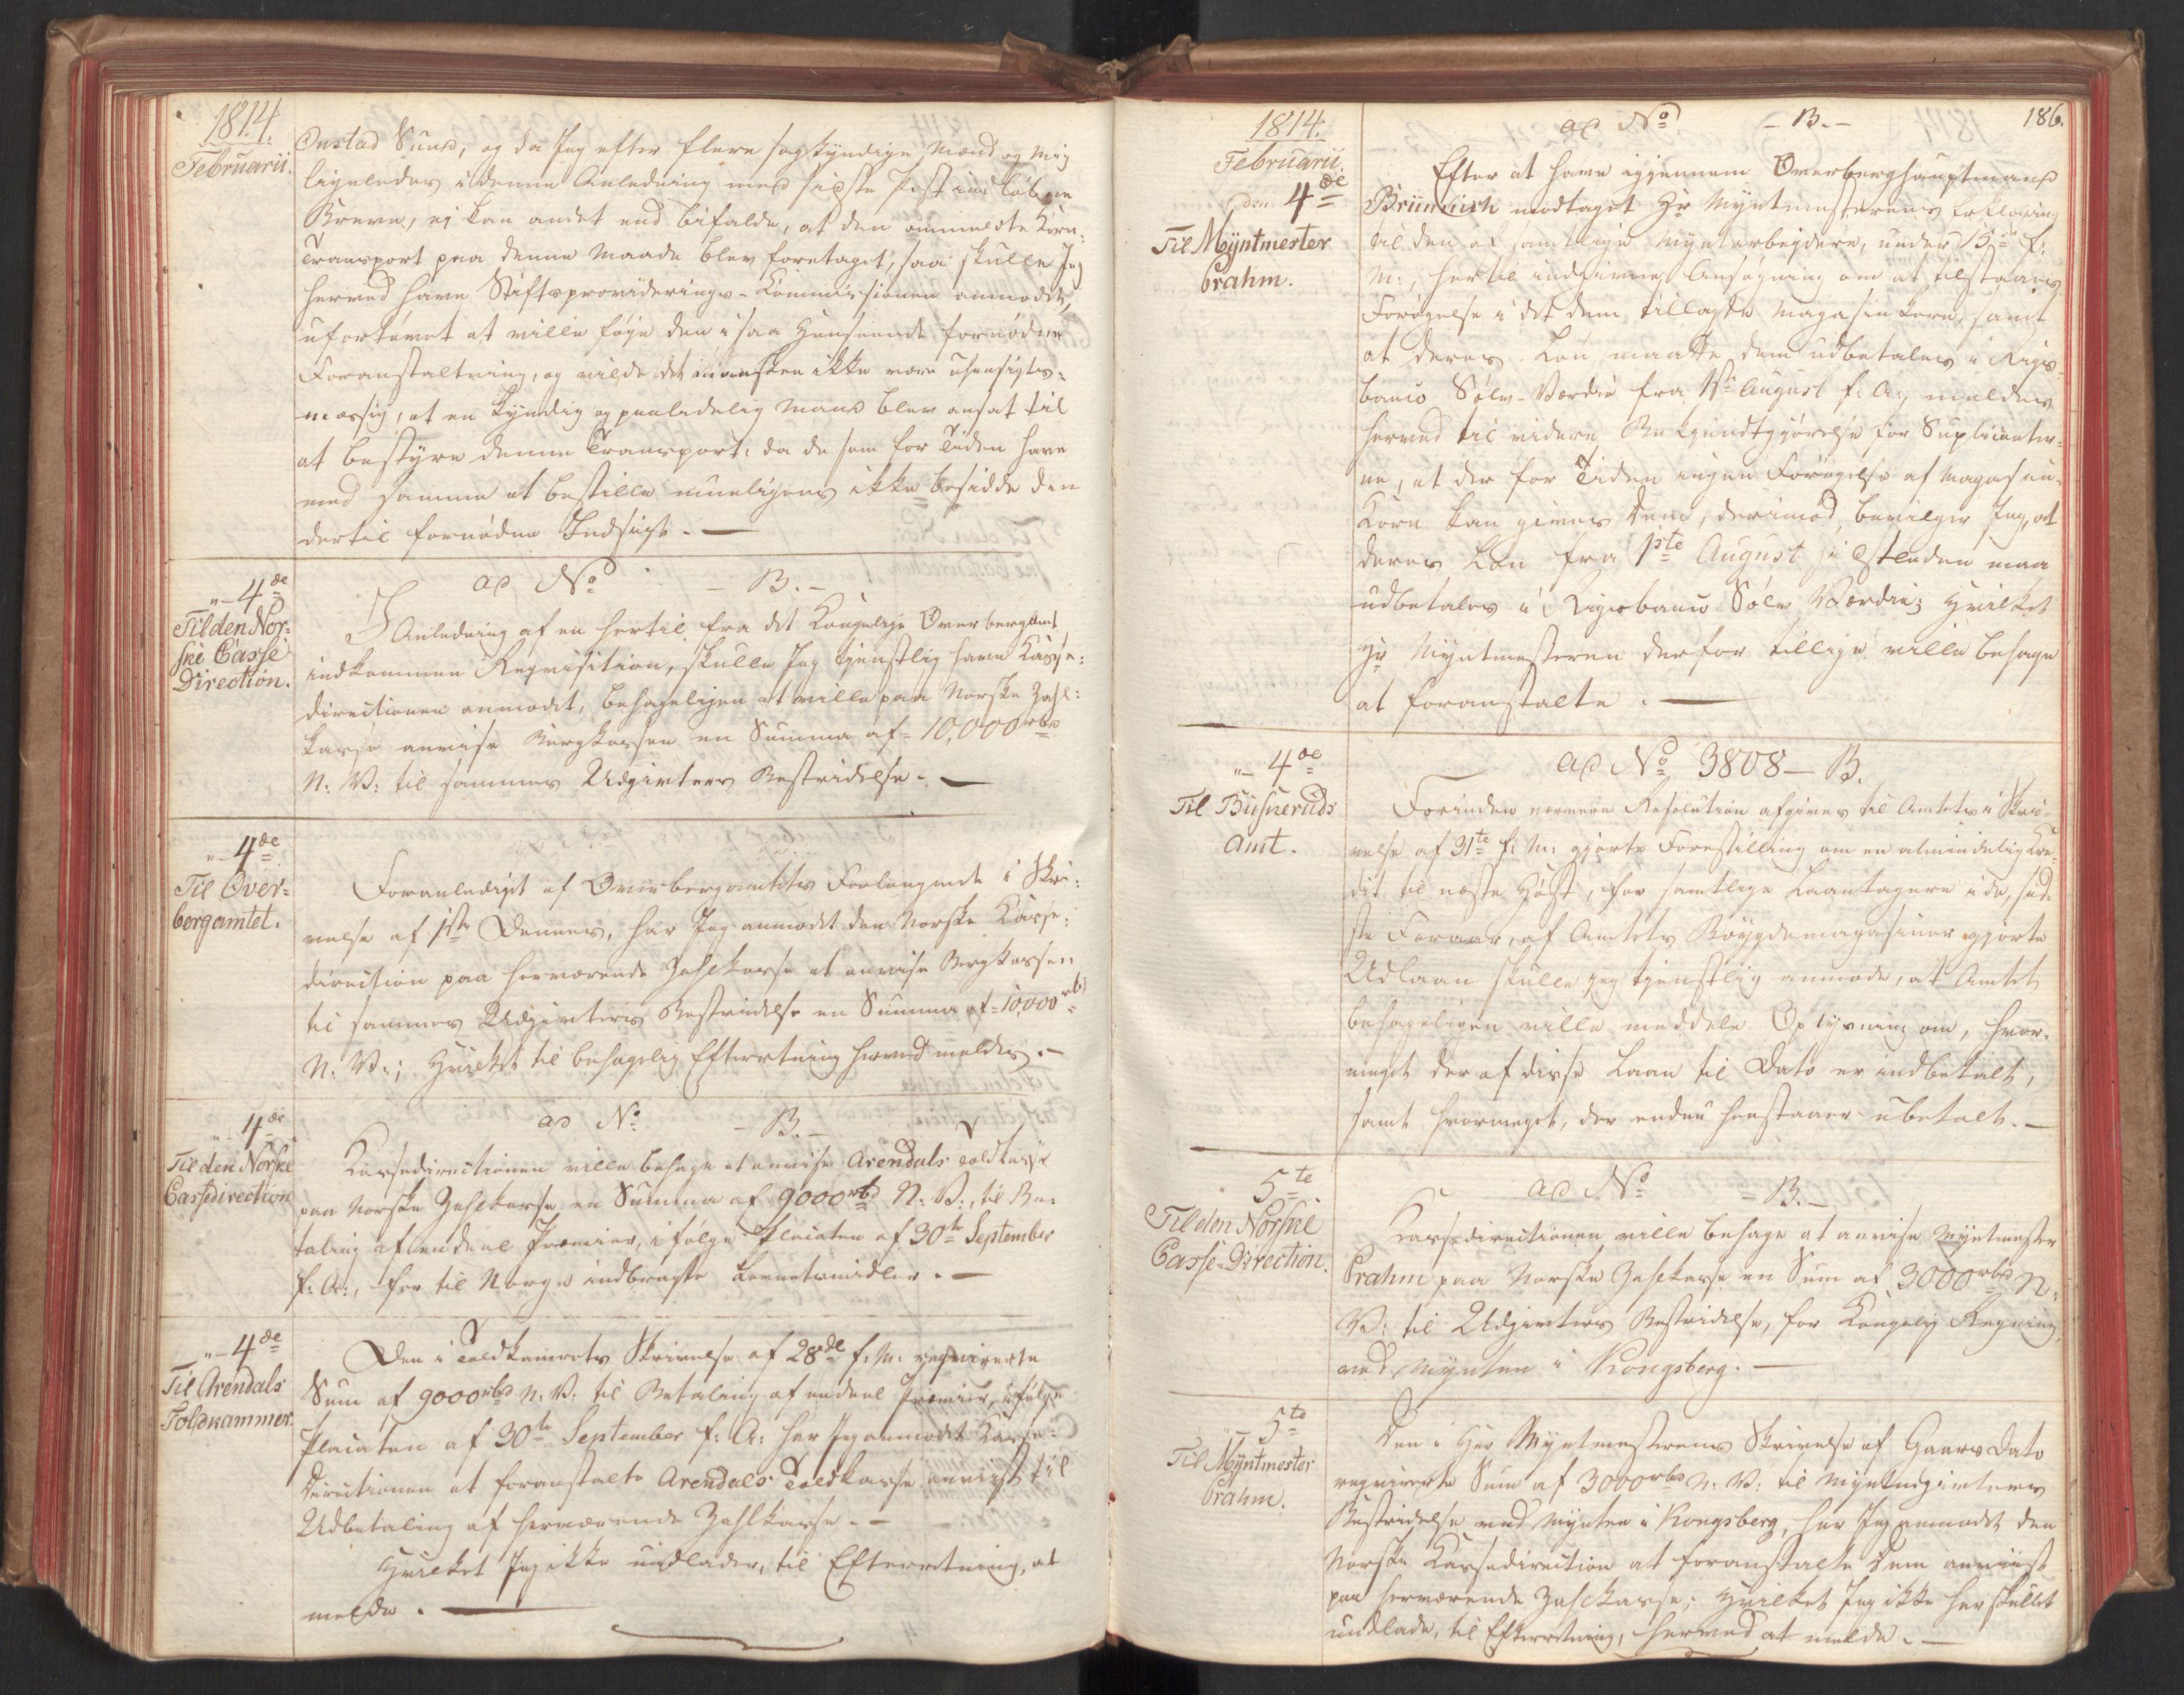 1814.
Februarii.
Onstad Sund, og da Jeg efter flere sagkyndige Mænd og mig
ligeledes i denne Anledning med sidste Post indløbne
Breve, ej kan andet end bifalde, at den ommeldte Korn-
Transport paa denne Maade blev foretaget, saa skulle Jeg
herved have Stiftsproviderings-Kommissionen anmodet,
ufortøvet at ville føye den i saa Henseende fornødne
Foranstaltning, og vilde det maaskee ikke være uhensigts-
mæssig, at en kyndig og paalidelig Mand blev ansat til
at bestyre denne Transport, da de som for Tiden have
med samme at bestille mueligens ikke besidde den
dertil fornødne Indsigt. —
"— 4de
Til den Nor-
ske Casse
Direction.
ad No — B. —
I Anledning af en hertil fra det Kongelige Overbergamt
indkommen Reqvisition, skulle Jeg tjenstlig have Kasse-
directionen anmodet, behageligen at ville paa Norske Zahl-
kasse anvise Bergkassen en Summa af 10,000 rbd
N: V: til sammes Udgivters Bestridelse. —
"— 4de
Til Over-
bergamtet.
Foranlediget af Overbergamtets Forlangende i Skri-
velse af 1ste Dennes, har Jeg anmodet den Norske Kasse-
direction paa herværende Zahlkasse at anvise Bergkassen
til sammes Udgivters Bestridelse en Summa af 10,000 rbd
N: V:; Hvilket til behagelig Efterretning herved meldes. —
"— 4de
Til den Norske
Cassedirection
ad No — B. —
Kassedirectionen ville behage at anvise Arendals Toldkasse
paa Norske Zahlkasse en Summa af 9000 rbd N: V:, til Be-
taling af endeel Præmier, ifølge Placaten af 30te September
f: A:, for til Norge indbragte Levnetsmidler. —
"— 4de
Til Arendals
Toldkammer.
Den i Toldkamrets Skrivelse af 28de f. M. reqvirerte
Sum af 9000 rbd N: V: til Betaling af endeel Præmier, ifølge
Placaten af 30te September f: A: har Jeg anmodet Kasse-
Directionen at foranstalte Arendals Toldkasse anvist til
Udbetaling af herværende Zahlkasse. —
Hvilket Jeg ikke undlader, til Efterretning, at
melde. —
186.
1814.
Februarii.
den 4de
Til Myntmester
Prahm.
ad No — B. —
Efter at have igjennem Overberghauptmand
Brünnich modtaget Hr Myntmesterens Erklæring
til den af samtlige Myntarbeydere, under 15de f:
M:, hertil indgivne Ansøgning om at tilstaaes
Forøgelse i det dem tillagte Magasinkorn, samt
at deres Løn maatte dem udbetales i Rigs-
banco Sølv-Værdie fra 1ste August f: A:, meldes
herved til videre Bekjendtgjørelse for Suplicanter-
ne, at der for Tiden ingen Forøgelse af Magasin-
Korn kan gives dem, derimod bevilger Jeg, at
deres Løn fra 1ste August sidstleden maa
udbetales i Rigsbanco Sølv Værdie; Hvilket
Hr Myntmesteren derfor tillige ville behage
at foranstalte. —
"— 4de
Til Busneruds
Amt.
ad No 3808 — B.
Forinden nærmere Resolution afgives til Amtets i Skri-
velse af 31te f: M: gjorte Forestilling om en almindelig Kre-
dit til næste Høst, for samtlige Laantagere i de, sid-
ste Foraar, af Amtets Bøygdemagasiner gjorte
Udlaan skulle jeg tjenstlig anmode, at Amtet
behageligen ville meddele Oplysning om, hvor-
meget der af disse Laan til Dato er indbetalt,
samt hvormeget, der endnu henstaaer ubetalt. —
" 5te
Til den Norske
Casse-Direction.
ad No — B. —
Kassedirectionen ville behage at anvise Myntmester
Prahm paa Norske Zahlkasse en Sum af 3000 rbd N:
V: til Udgivters Bestridelse, for Kongelig Regning,
ved Mynten i Kongsberg. —
"— 5te
Til Myntmester
Prahm.
Den i Herr Myntmesterens Skrivelse af Gaars Dato
reqvirerte Sum af 3000 rbd N: V: til Myntudgivternes
Bestridelse ved Mynten i Kongsberg, har Jeg anmodet den
Norske Kassedirection at foranstalte Dem anviist
paa herværende Zahlkasse; Hvilket Jeg ikke har skullet
undlade, til Efterretning, herved at melde. —